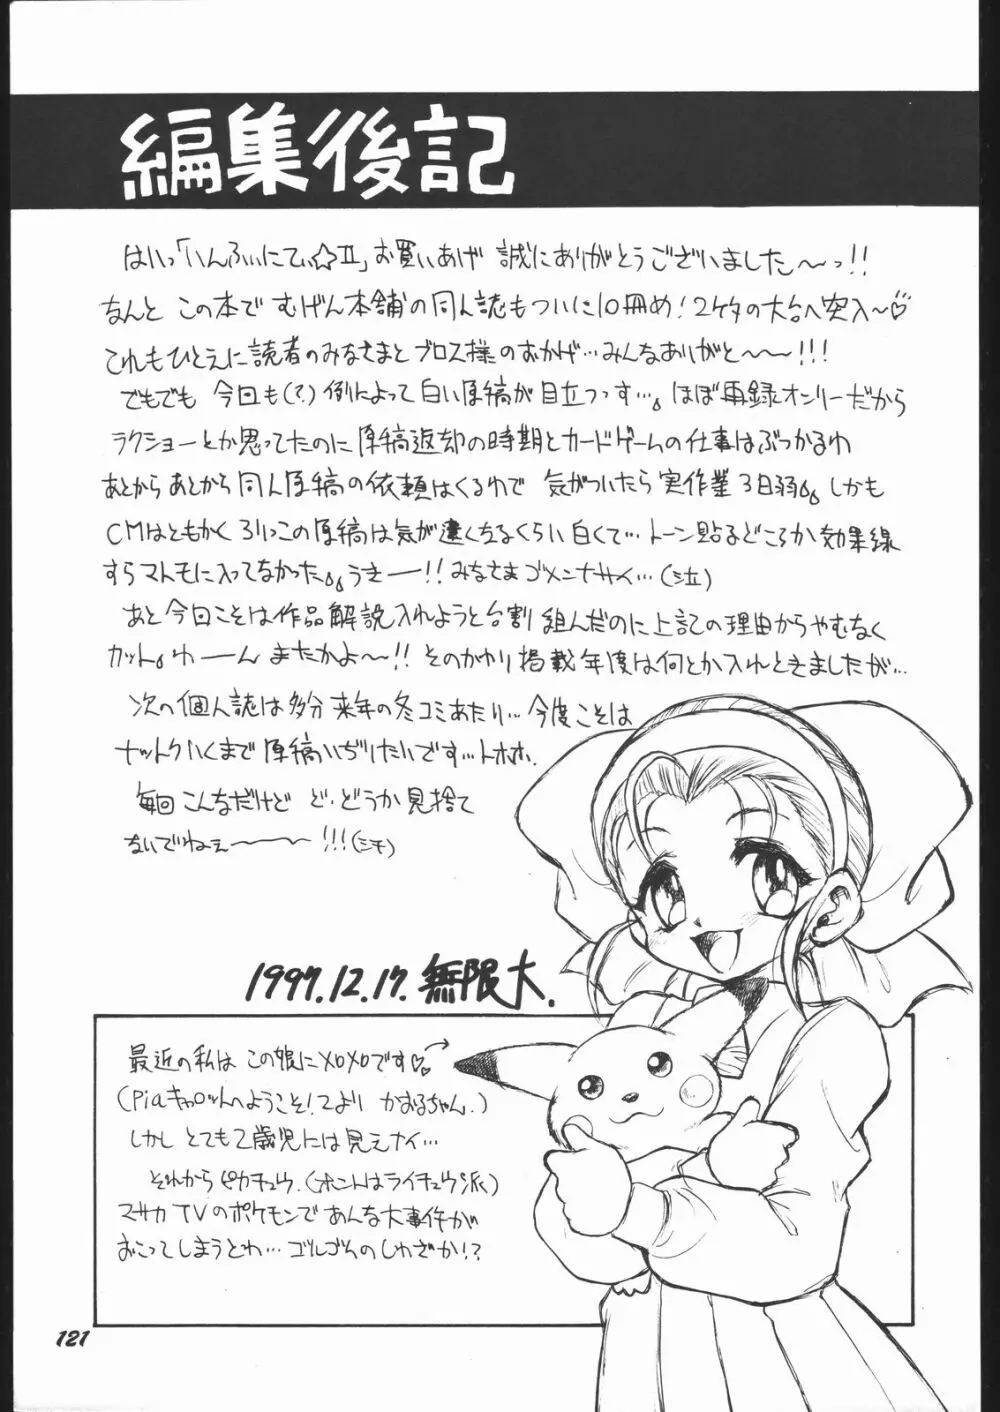 編集後記
はいっ「いんふぃにてぃ☆Ⅱ」お買いあげ 誠にありがとうございました〜っ!!
なんと この本で むげん本舗の同人誌もついに10冊め!2ケタの大台へ突入〜♡
これもひとえに読者のみなさまと ブロス様のおかげ…みんなありがと〜〜!!!
でもでも 今回も(?)例によって白い原稿が目立つっす…。ほぼ再録オンリーだから
ラクショーとか思ってたのに原稿返却の時期とカードゲームの仕事はぶつかるわ
あとからあとから同人原稿の依頼はくるわで 気がついたら実作業3日弱。。しかも
CMはともかく ろりっこの原稿は気が遠くなるくらい白くて…トーン貼るどころか効果線
すらマトモに入ってなかった。。うきー!!みなさまゴメンナサイ…(泣)
あと今回こそは作品解説入れようと台割組んだのに上記の理由からやむなく
カット。わーん またかよ〜!! そのかわり掲載年度は何とか入れときましたが…
次の個人誌は多分来年の冬コミあたり…今度こそは
ナットクいくまで原稿いぢりたいです…トホホ.
毎回こんなだけど ど・どうか見捨て
ないでねぇ〜〜!!!(汗)
1997.12.17.無限大.
最近の私は この娘にメロメロです♡♡
(Piaキャロットへようこそ!2より かおるちゃん.)
しかし とても2歳児には見えナイ…
それから ピカチュウ.(ホントはライチュウ派)
マサカ TVのポケモンで あんな大事件が
おこってしまうとわ…ゴルゴムのしわざか!?
121